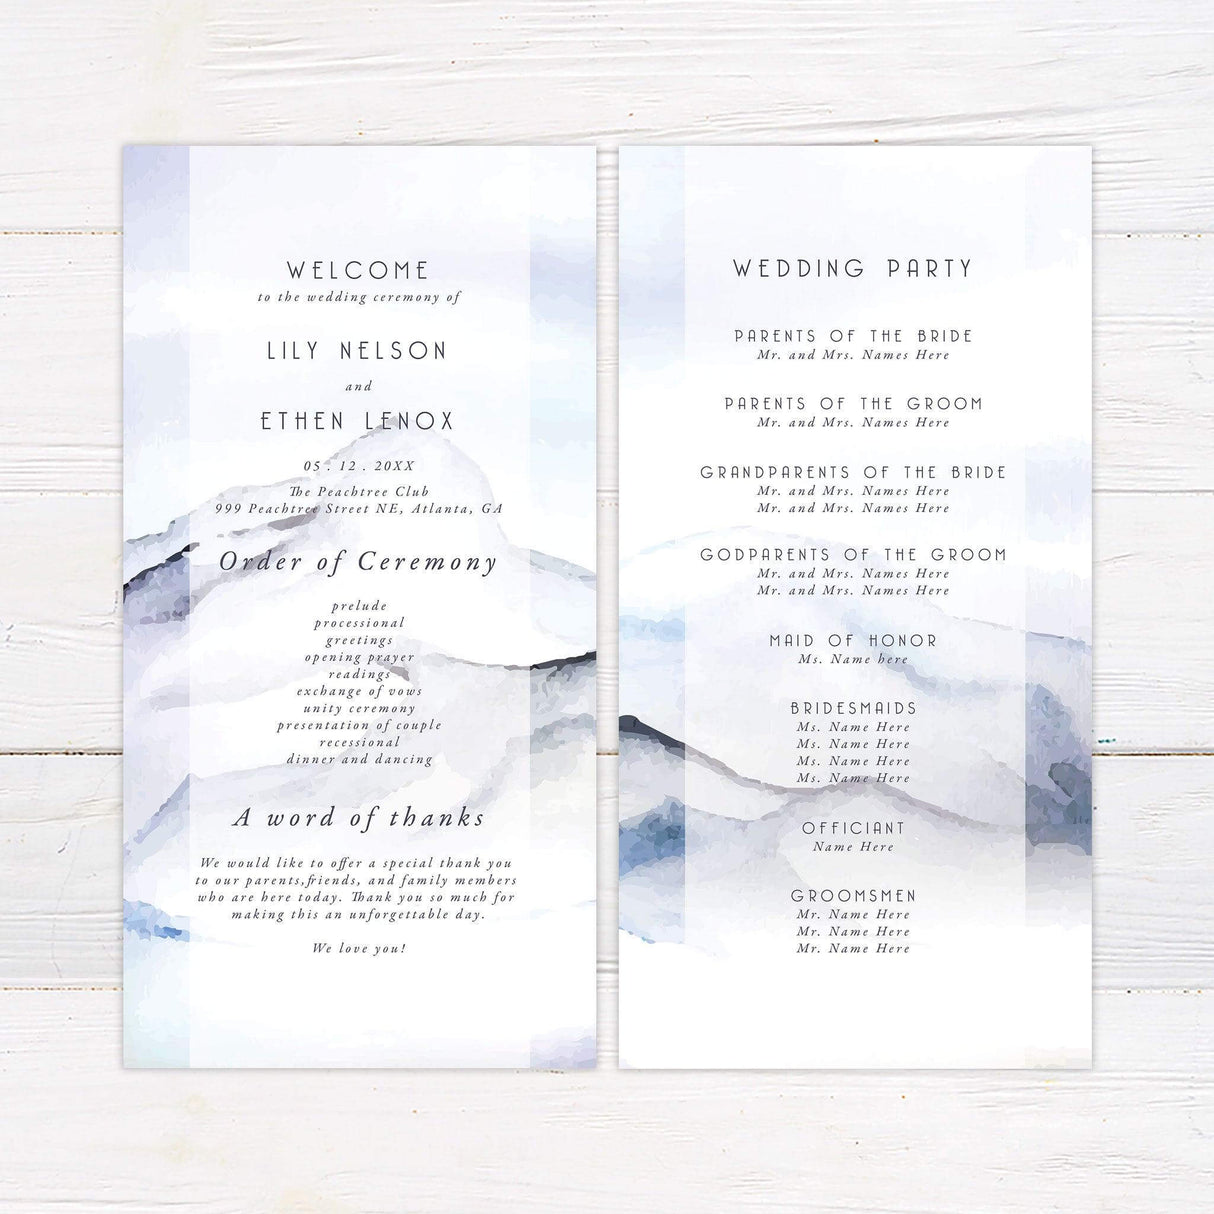 WELCOME
to the wedding ceremony of
LILY NELSON
and
ETHEN LENOX
05 . 12 . 20XX
The Peachtree Club
999 Peachtree Street NE, Atlanta, GA
Order of Ceremony
prelude
processional
greetings
opening prayer
readings
exchange of vows
unity ceremony
presentation of couple
recessional
dinner and dancing
A word of thanks
We would like to offer a special thank you
to our parents,friends, and family members
who are here today. Thank you so much for
making this an unforgettable day.
We love you!
WEDDING PARTY
PARENTS OF THE BRIDE
Mr. and Mrs. Names Here
PARENTS OF THE GROOM
Mr. and Mrs. Names Here
GRANDPARENTS OF THE BRIDE
Mr. and Mrs. Names Here
Mr. and Mrs. Names Here
GODPARENTS OF THE GROOM
Mr. and Mrs. Names Here
Mr. and Mrs. Names Here
MAID OF HONOR
Ms. Name here
BRIDESMAIDS
Ms. Name Here
Ms. Name Here
Ms. Name Here
Ms. Name Here
OFFICIANT
Name Here
GROOMSMEN
Mr. Name Here
Mr. Name Here
Mr. Name Here